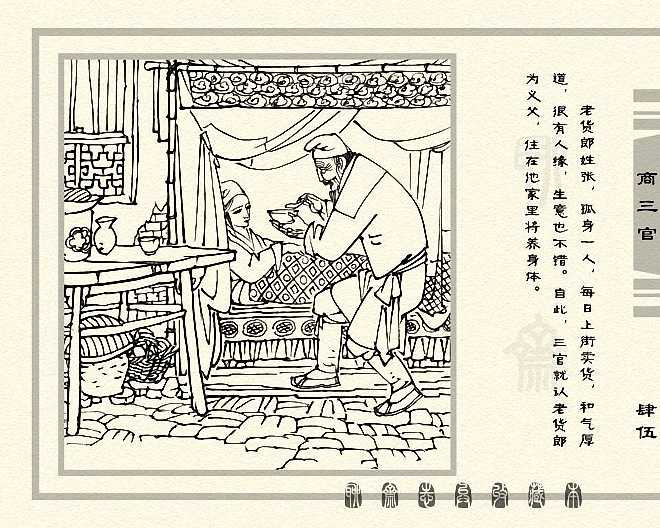 老货郎姓张，孤身一人，每日上街卖货，和气厚
道，很有人缘，生意也不错。自此，三官就认老货郎
为义父，住在他家里将养身体。
商三官
肆伍